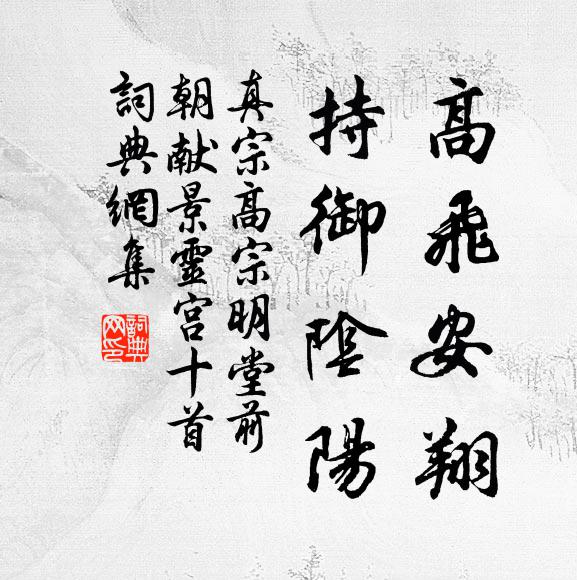 高飛安翔
持御陰陽
真宗高宗明堂前
朝献景靈宮十首
詞典網集
詞典網印